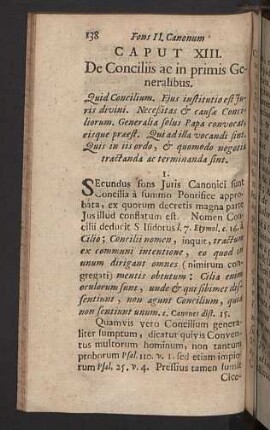 138 Fons II. Canonum
CAPUT XIII.
De Conciliis ac in primis Ge-
neralibus.
Quid Concilium. Ejus institutio est Ju-
ris divini. Necessitas & causæ Conci-
liorum. Generalia solus Papa convocat,
eisque præest. Qui ad illa vocandi sint.
Quis in iis ordo, & quomodo negotia
tractanda ac terminanda sint.
I.
SEcundus fons Juris Canonici sunt
Concilia à summo Pontifice appro-
bata, ex quorum decretis magna parte
Jus illud conflatum est. Nomen Con-
cilii deducit S Isidorus l. 7. Etymol. c. 16. à
Cilio; Concilii nomen, inquit, tractum
ex communi intentione, eo quod in
unum dirigant omnes (nimirum con-
gregati) mentis obtutum: Cilia enim
oculorum sunt, unde & qui sibimet dis-
sentiunt, non agunt Concilium, quia
non sentiunt unum. c. Canones dist. 15.
Quamvis vero Concilium genera-
liter sumptum, dicatur quivis Conven-
tus multorum hominum, non tantum
proborum Psal. 110. v. 1. sed etiam impio-
rum Psal. 25. v. 4. Pressius tamen sumit
Cice-